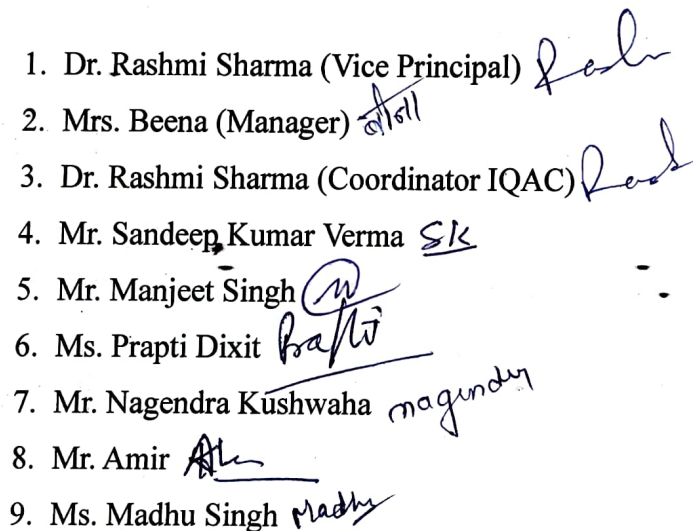 1. Dr. Rashmi Sharma (Vice Principal) Rash
2. Mrs. Beena (Manager) बीना
3. Dr. Rashmi Sharma (Coordinator IQAC) Rash
4. Mr. Sandeep Kumar Verma SK
5. Mr. Manjeet Singh
6. Ms. Prapti Dixit Prapti
7. Mr. Nagendra Kushwaha nagendra
8. Mr. Amir
9. Ms. Madhu Singh Madhu